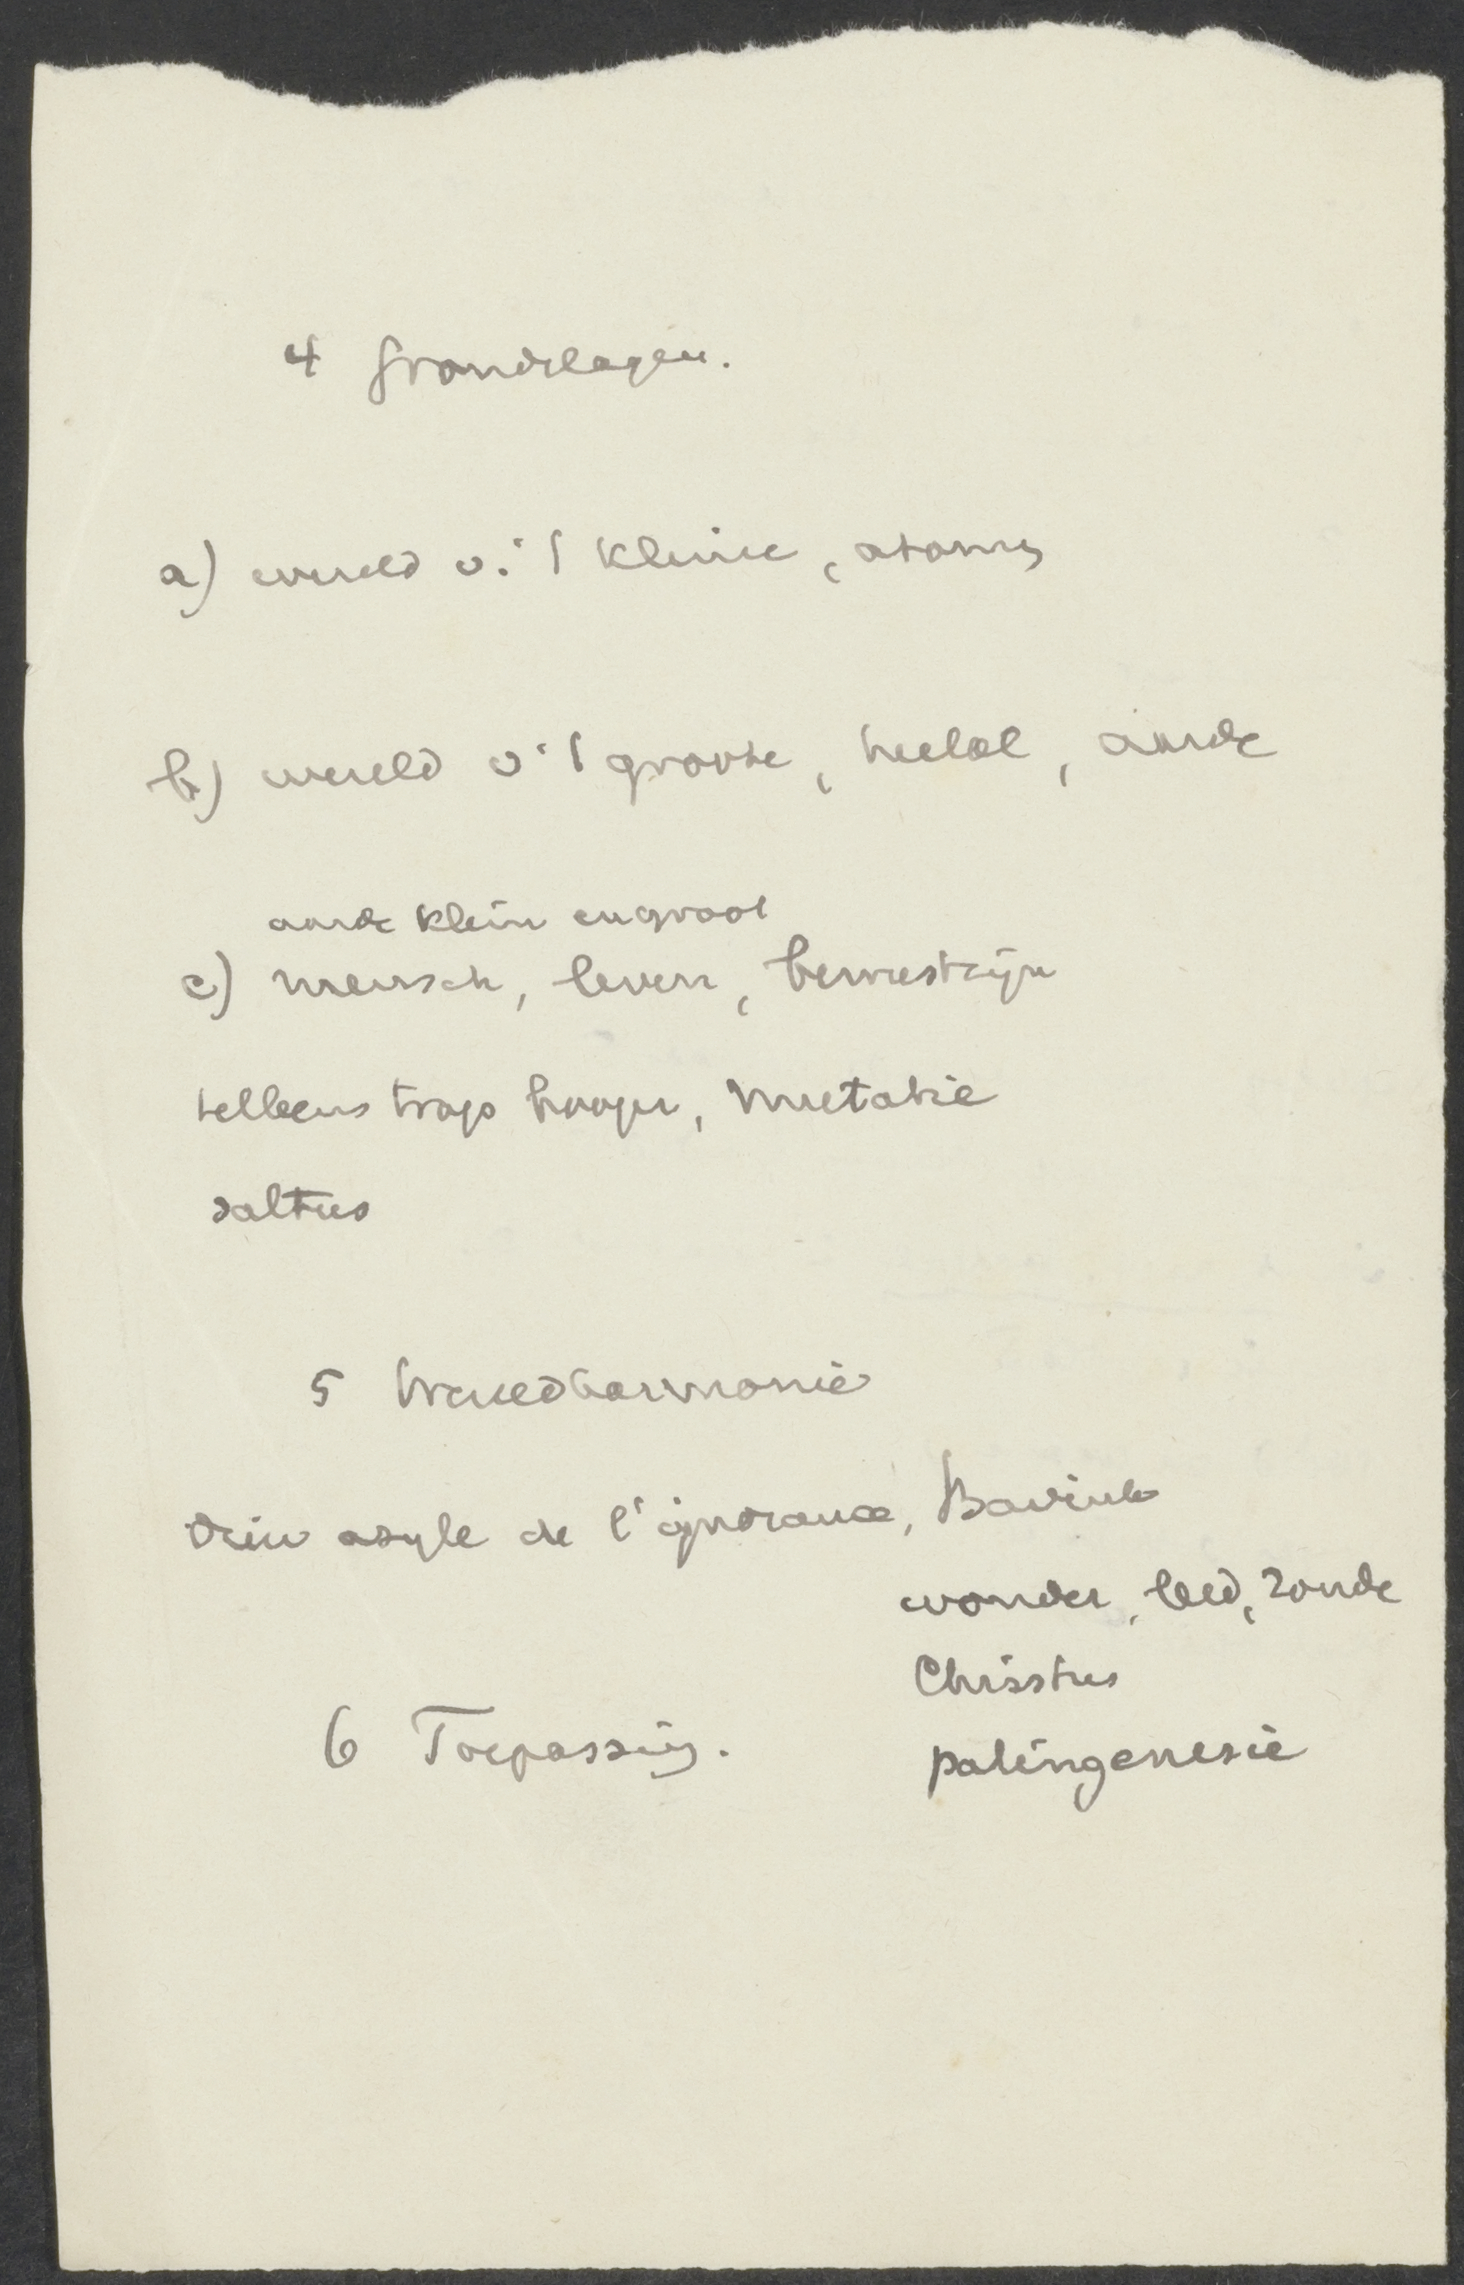 4 Grondslagen.
a) wereld v. 't kleine, atomen
b) wereld v 't groote, heelal, aarde
aarde klein en groot
c) mensch, leven, bewustzijn
telkens trap hooger, mutatie
saltus
5 Wereldharmonie
Dieu asyle de l'ignorance, Bavink
wonder, leed, zonde
Christus
palingenesie
6 Toepassing.